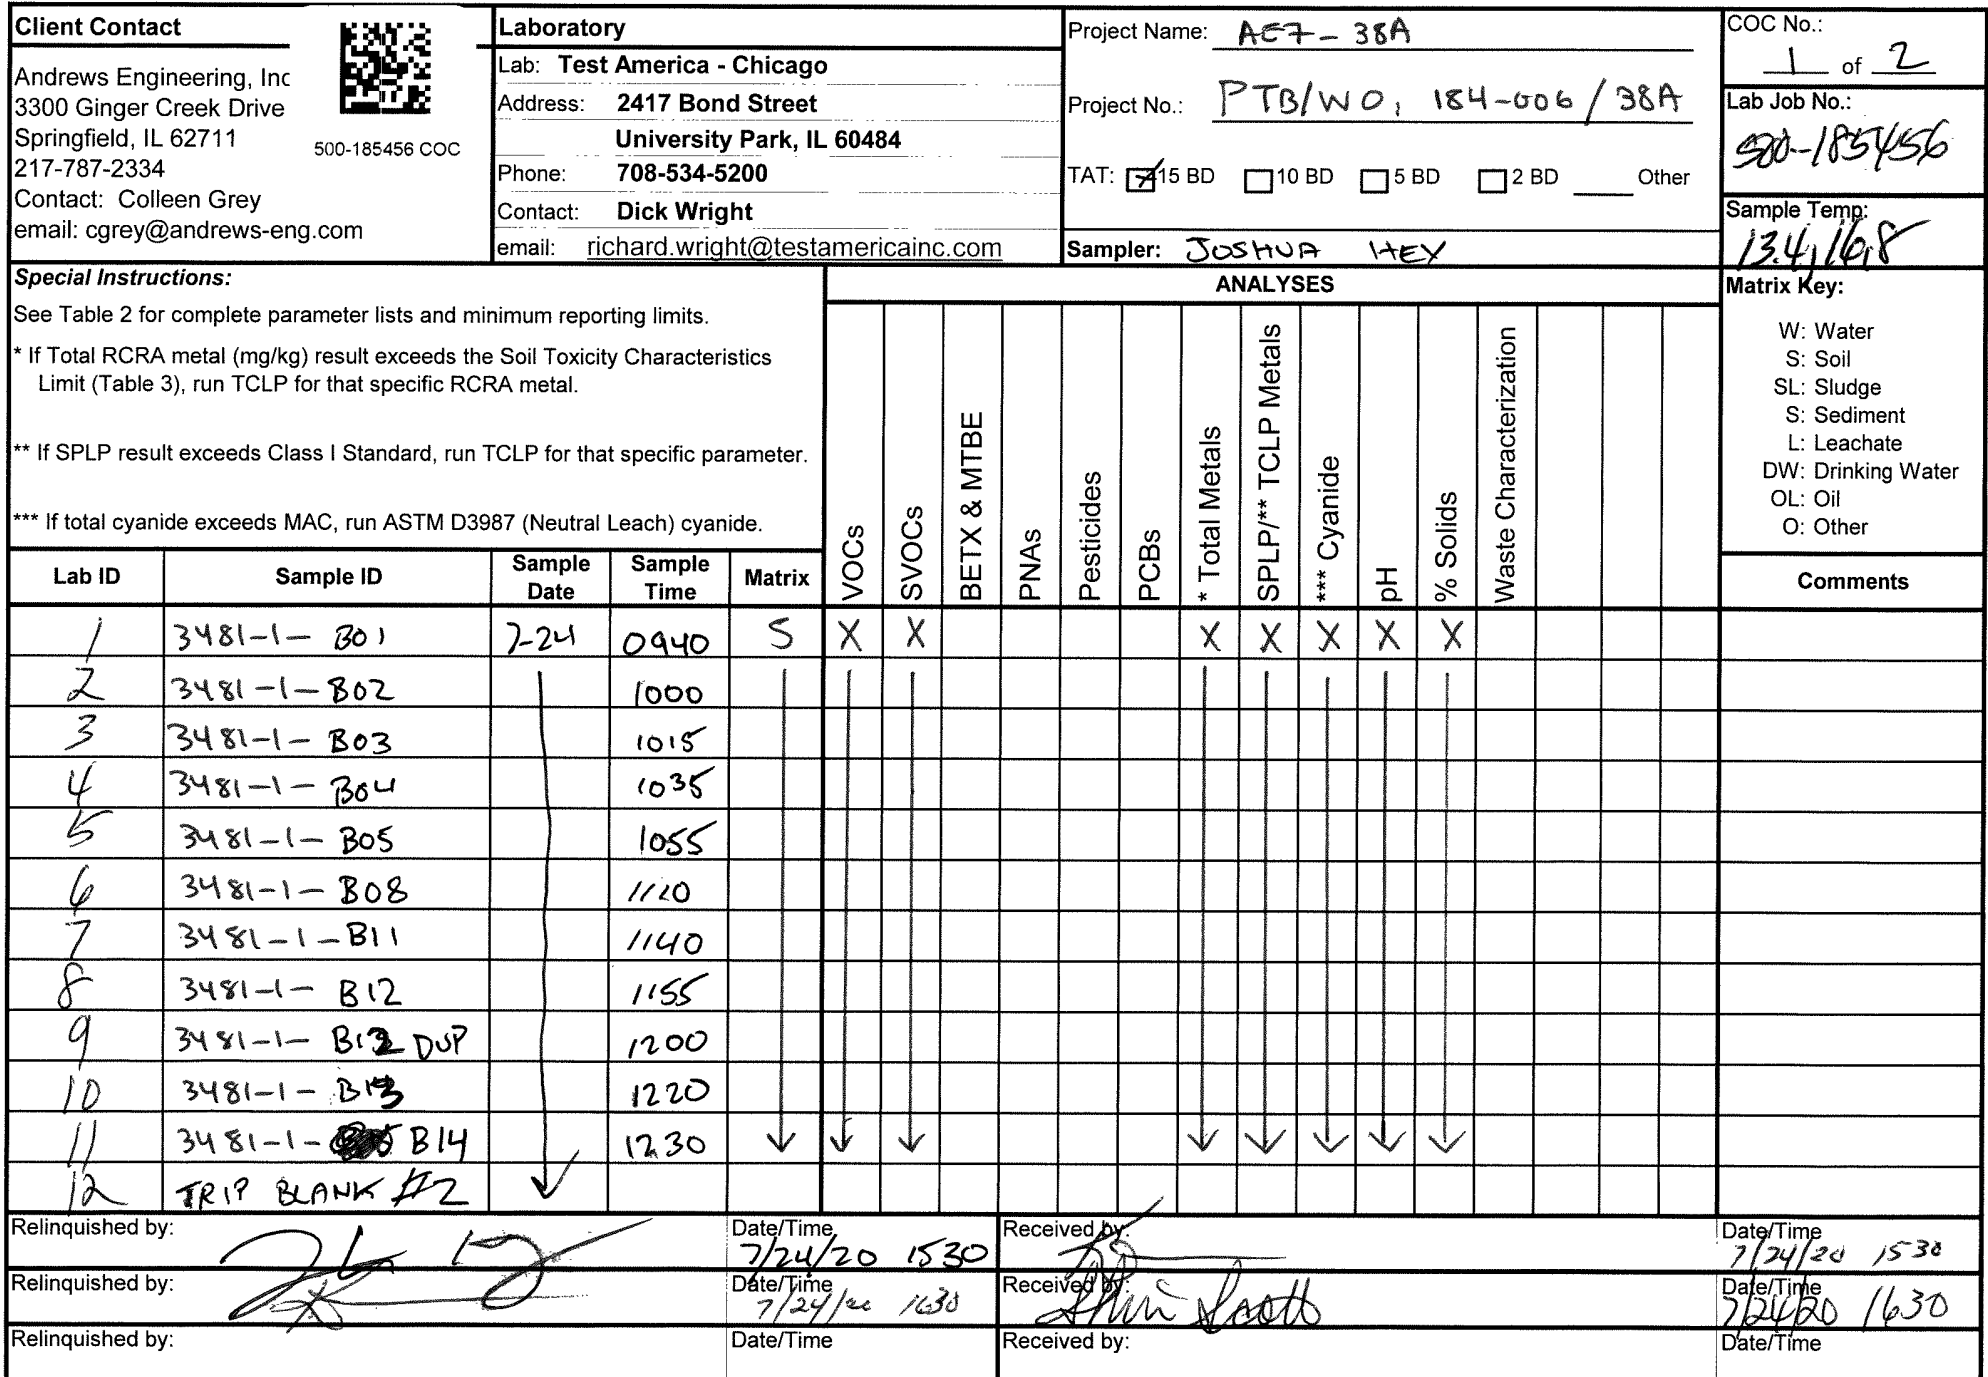 Client Contact
Andrews Engineering, Inc
3300 Ginger Creek Drive
Springfield, IL 62711
217-787-2334
Contact: Colleen Grey
email: cgrey@andrews-eng.com
500-185456 COC
Laboratory
Lab: Test America - Chicago
Address: 2417 Bond Street
University Park, IL 60484
Phone: 708-534-5200
Contact: Dick Wright
email: richard.wright@testamericainc.com
Project Name: AE7-38A
Project No.: PTB/WO: 184-006/38A
TAT: 15 BD 10 BD 5 BD 2 BD Other
Sampler: JOSHUA HEY
COC No.:
1 of 2
Lab Job No.:
500-185456
Sample Temp:
13.4, 16.8
Special Instructions:
See Table 2 for complete parameter lists and minimum reporting limits.
* If Total RCRA metal (mg/kg) result exceeds the Soil Toxicity Characteristics
Limit (Table 3), run TCLP for that specific RCRA metal.
** If SPLP result exceeds Class I Standard, run TCLP for that specific parameter.
*** If total cyanide exceeds MAC, run ASTM D3987 (Neutral Leach) cyanide.
ANALYSES
VOCs
SVOCs
BETX & MTBE
PNAs
Pesticides
PCBs
* Total Metals
SPLP/** TCLP Metals
*** Cyanide
pH
% Solids
Waste Characterization
Matrix Key:
W: Water
S: Soil
SL: Sludge
S: Sediment
L: Leachate
DW: Drinking Water
OL: Oil
O: Other
Lab ID Sample ID Sample Date Sample Time Matrix Comments
1 3481-1-B01 7-24 0940 S X X X X X X X
2 3481-1-B02 1000
3 3481-1-B03 1015
4 3481-1-B04 1035
5 3481-1-B05 1055
6 3481-1-B08 1120
7 3481-1-B11 1140
8 3481-1-B12 1155
9 3481-1-B12 DUP 1200
10 3481-1-B13 1220
11 3481-1- B14 1230
12 TRIP BLANK #2
Relinquished by: Date/Time 7/24/20 1530 Received by: Date/Time 7/24/20 1530
Relinquished by: Date/Time 7/24/20 1630 Received by: Date/Time 7/24/20 1630
Relinquished by: Date/Time Received by: Date/Time